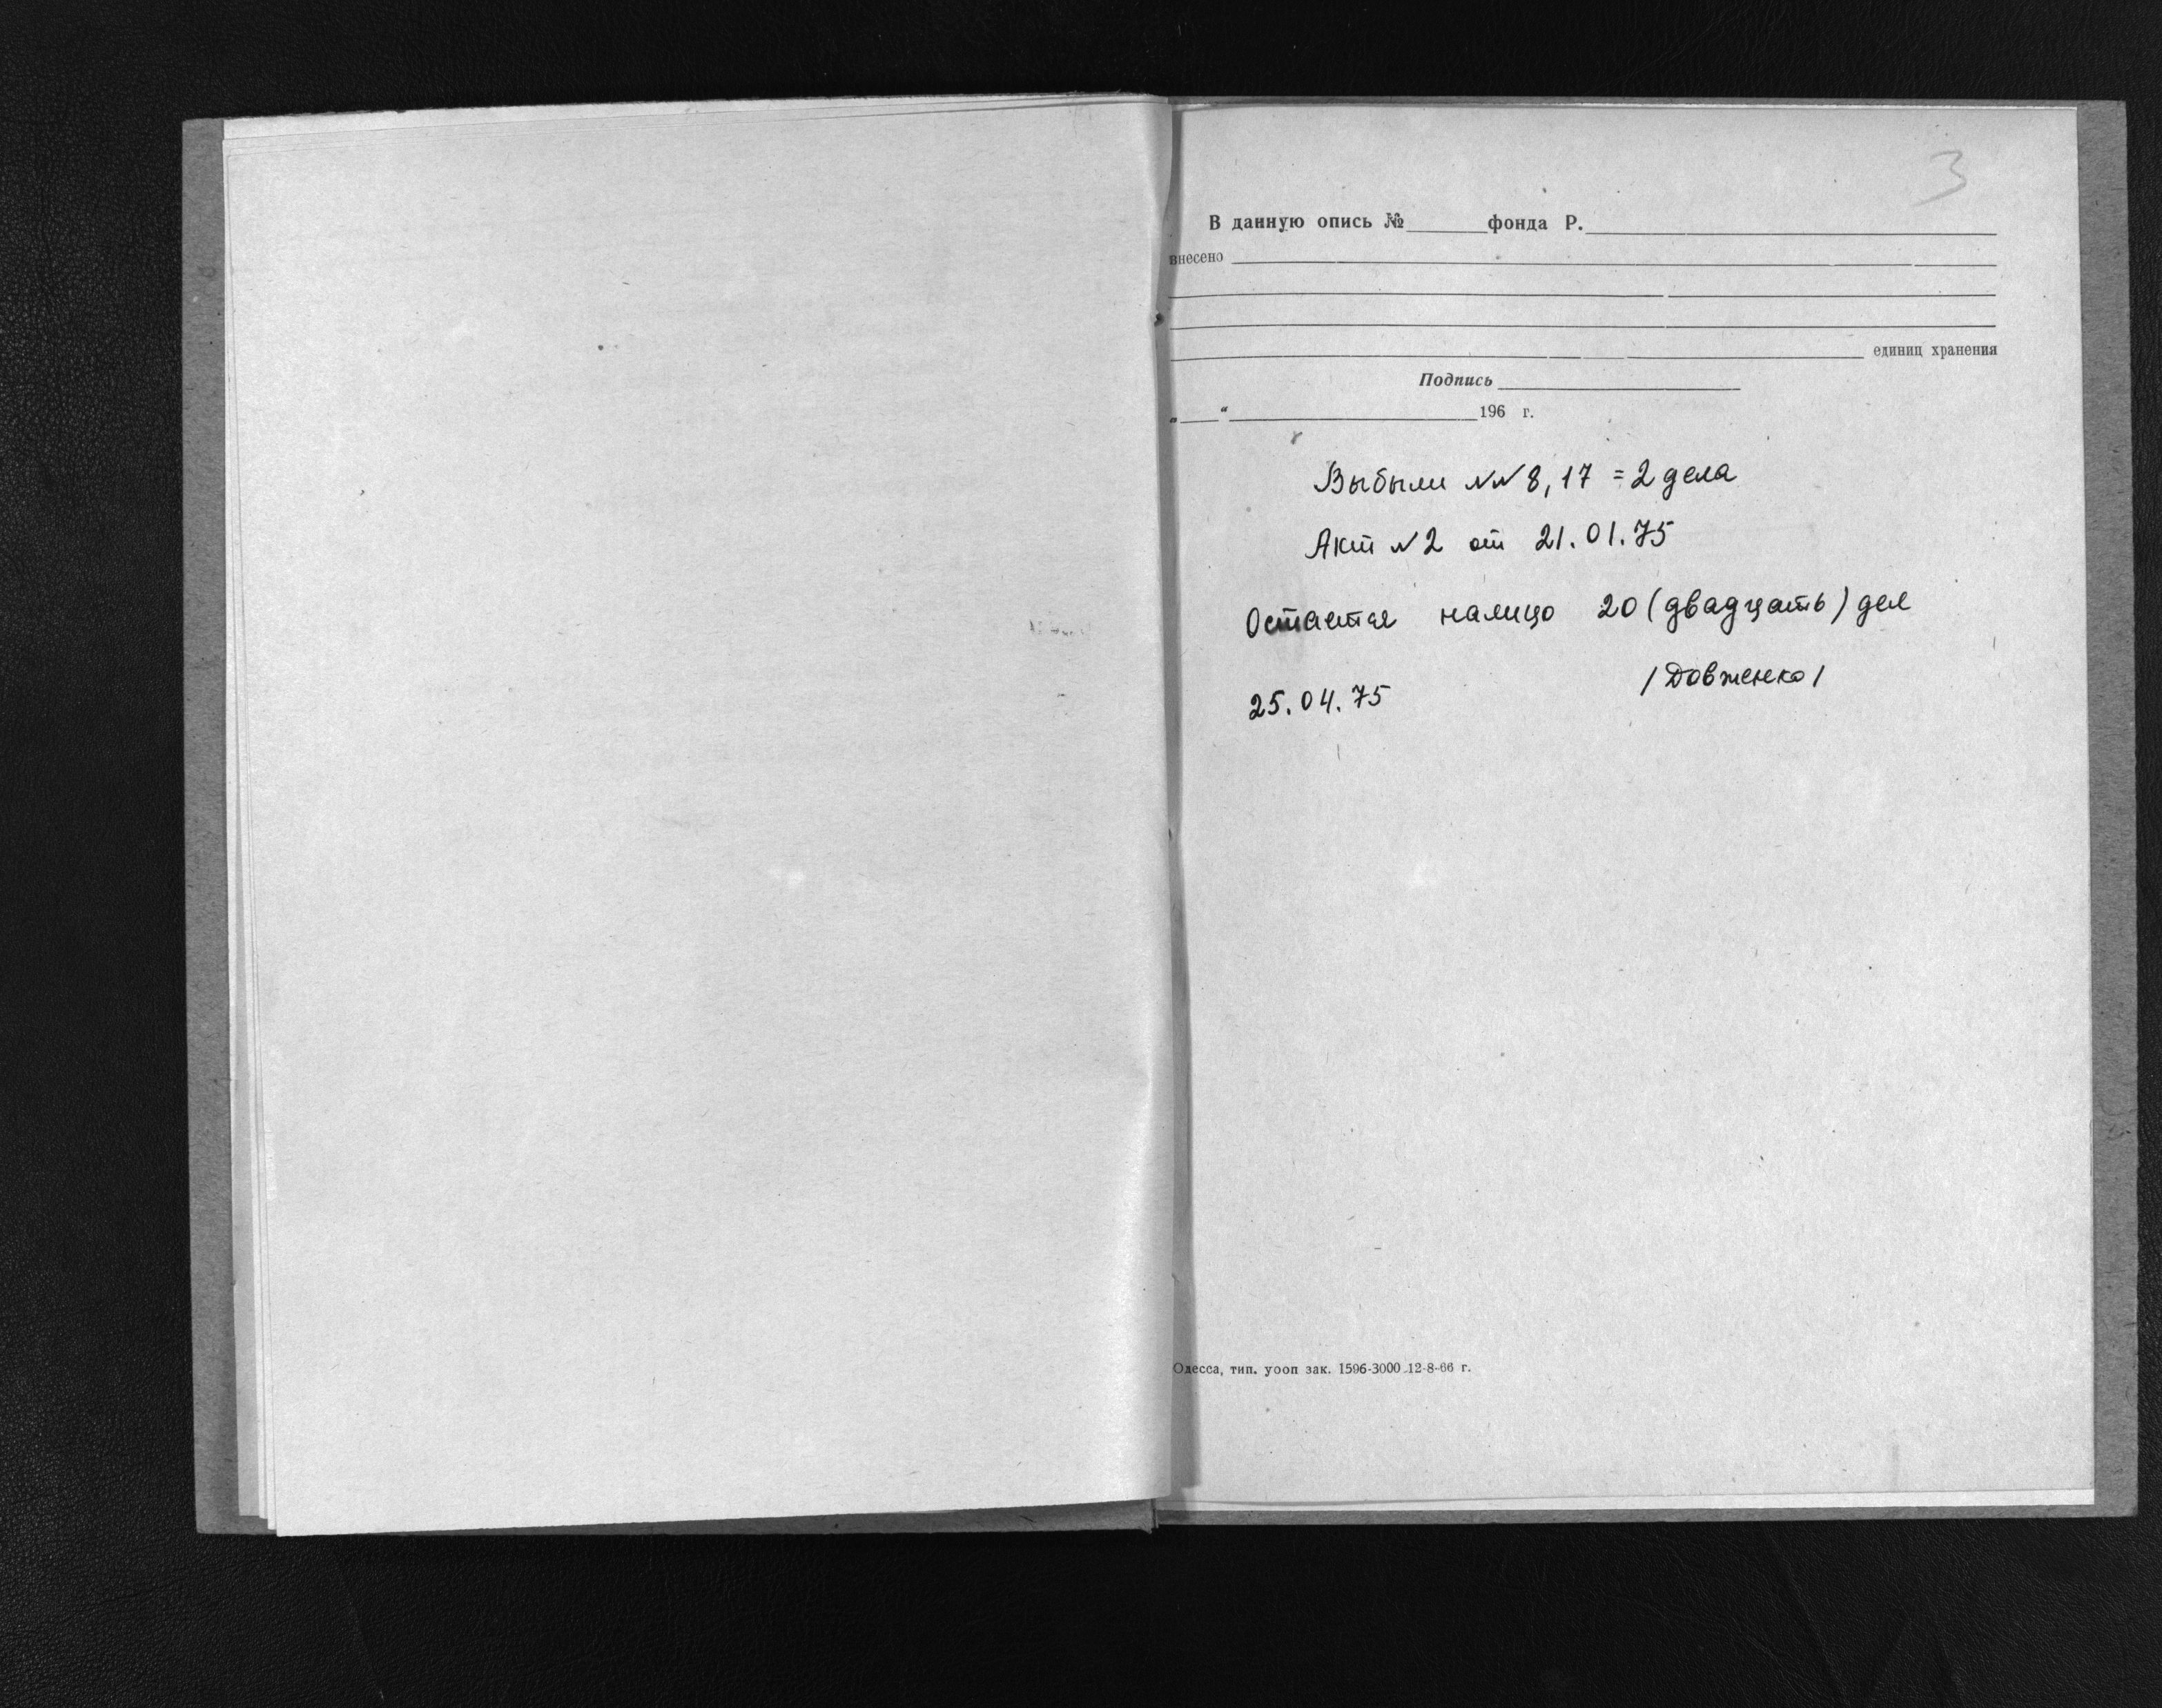 3
В данную опись №______фонда Р.______
внесено ______
______ единиц хранения
Подпись ______
„___“ ______196 г.
Выбыли NN 8, 17 = 2 дела
Акт N 2 от 21.01.75
Остается налицо 20 (двадцать) дел
/Довженко/
25.04.75
Одесса, тип. уооп зак. 1596-3000 12-8-66 г.